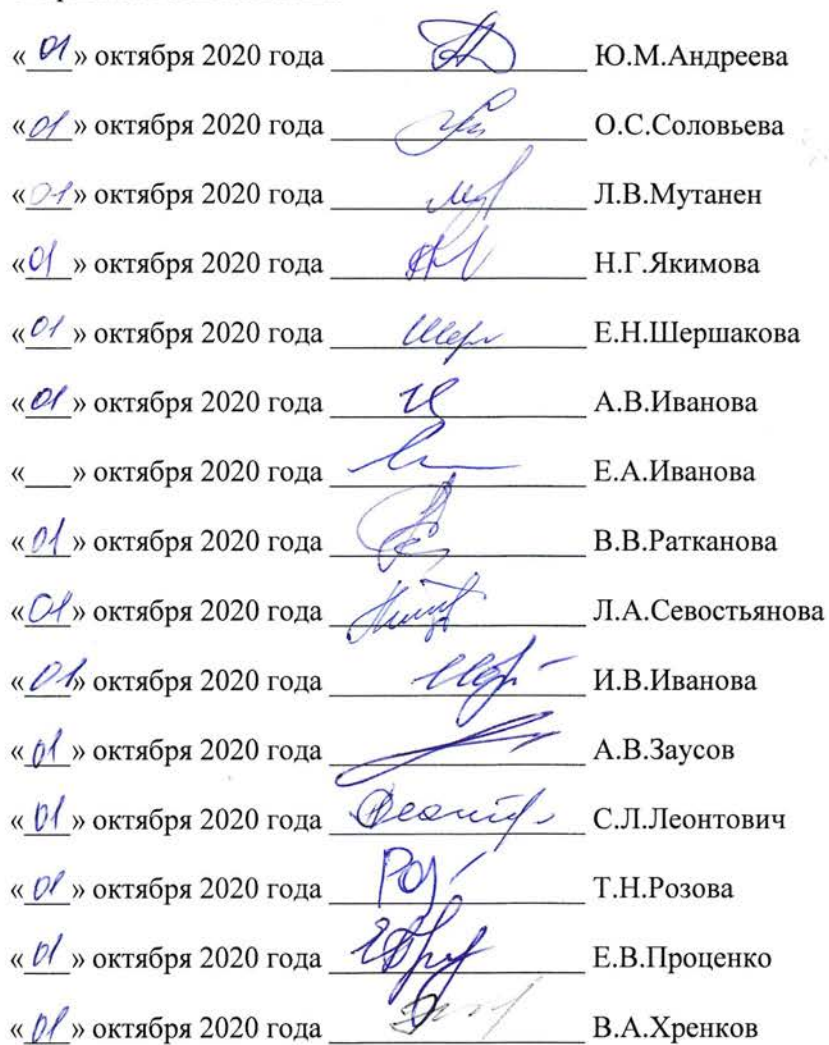 «01» октября 2020 года Ю.М.Андреева
«01» октября 2020 года О.С.Соловьева
«01» октября 2020 года Л.В.Мутанен
«01» октября 2020 года Н.Г.Якимова
«01» октября 2020 года Е.Н.Шершакова
«01» октября 2020 года А.В.Иванова
«___» октября 2020 года Е.А.Иванова
«01» октября 2020 года В.В.Ратканова
«01» октября 2020 года Л.А.Севостьянова
«01» октября 2020 года И.В.Иванова
«01» октября 2020 года А.В.Заусов
«01» октября 2020 года С.Л.Леонтович
«01» октября 2020 года Т.Н.Розова
«01» октября 2020 года Е.В.Проценко
«01» октября 2020 года В.А.Хренков